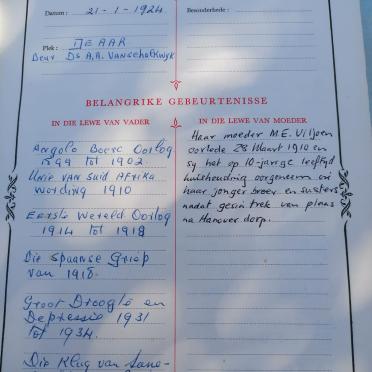 Datum: 21-1-1924
Besonderhede:
Plek: DE AAR
Deur Ds A.A. VanSchalkwyk
BELANGRIKE GEBEURTENISSE
IN DIE LEWE VAN VADER
IN DIE LEWE VAN MOEDER
Angelo Boere Oorlog
1899 tot 1902.
Unie van Suid Afrika
wording 1910
Eerste Wereld Oorlog
1914 tot 1918
Die Spaanse Griep
van 1918.
Groot Droogte en
Depressie 1931
tot 1934.
Die Klug van
Haar moeder M.E. Viljoen
oorlede 28 Maart 1910 en
sy het op 10-jarige leeftyd
huishouding oorgeneem vir
haar jonger broer en susters
nadat gesin trek van plaas
na Hanover dorp.